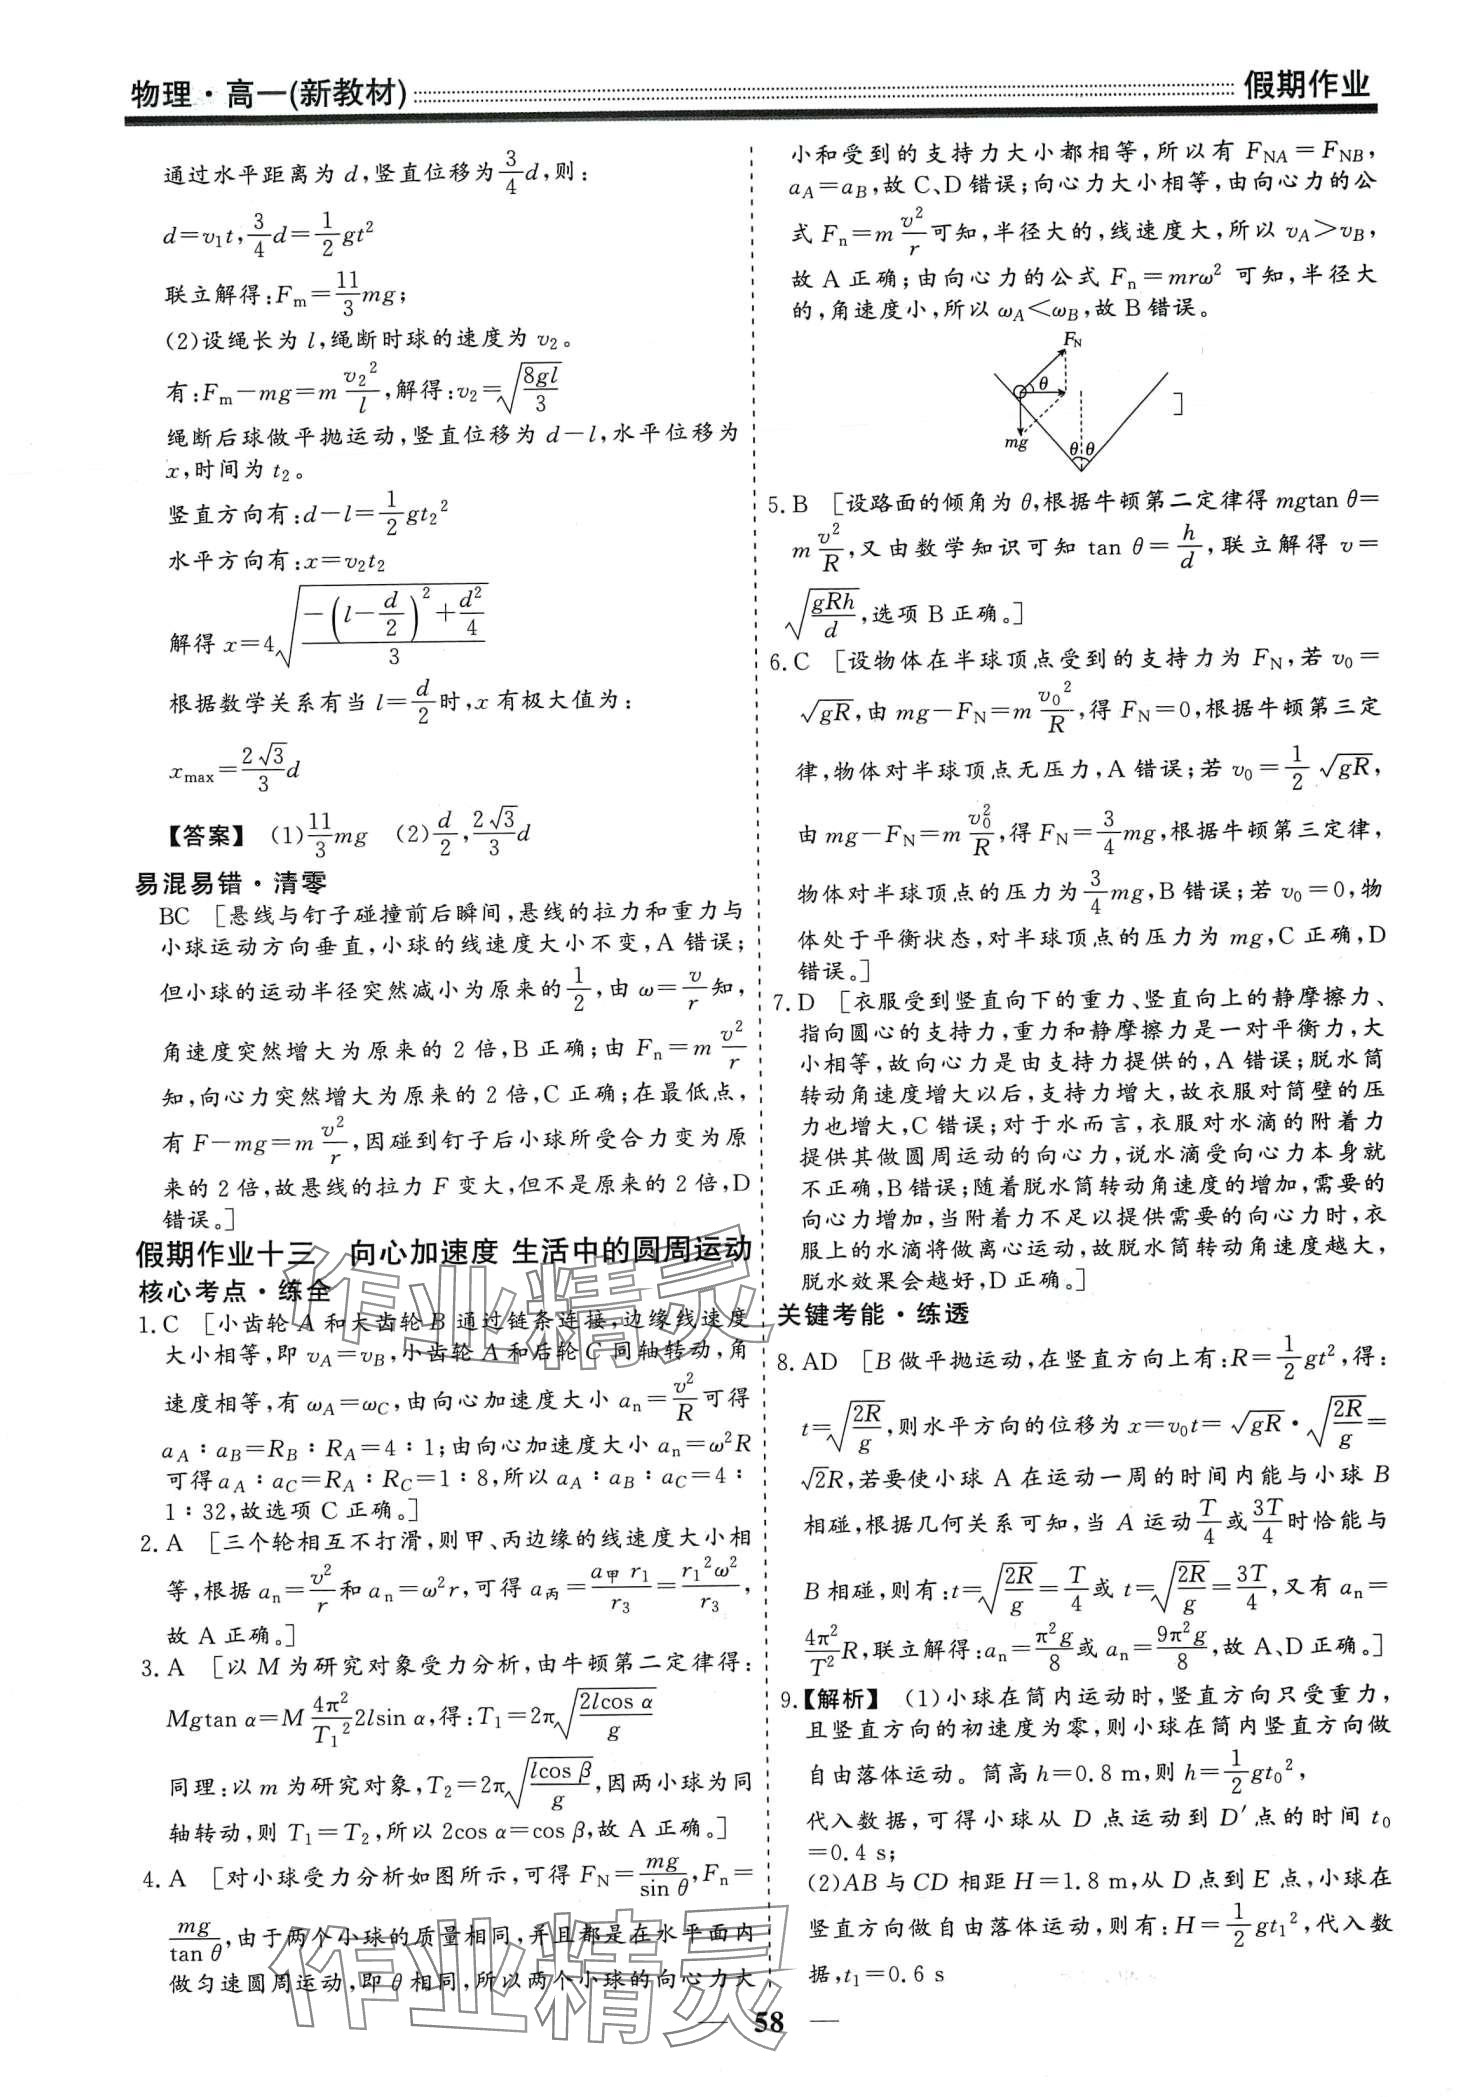 物理·高一(新教材)
假期作业
通过水平距离为 d,竖直位移为 3/4 d,则:
d=v₁t, 3/4 d= 1/2 gt²
联立解得:Fₘ= 11/3 mg;
(2)设绳长为 l,绳断时球的速度为 v₂。
有:Fₘ−mg=m v₂²/l,解得:v₂=√(8gl/3)
绳断后球做平抛运动,竖直位移为 d−l,水平位移为
x,时间为 t₂。
竖直方向有:d−l= 1/2 gt₂²
水平方向有:x=v₂t₂
解得 x=4√((−(l−d/2)²+d²/4)/3)
根据数学关系有当 l= d/2 时,x 有极大值为:
x_max= 2√3/3 d
【答案】 (1) 11/3 mg (2) d/2, 2√3/3 d
易混易错·清零
BC [悬线与钉子碰撞前后瞬间,悬线的拉力和重力与
小球运动方向垂直,小球的线速度大小不变,A 错误;
但小球的运动半径突然减小为原来的 1/2,由 ω= v/r 知,
角速度突然增大为原来的 2 倍,B 正确;由 Fₙ=m v²/r
知,向心力突然增大为原来的 2 倍,C 正确;在最低点,
有 F−mg=m v²/r,因碰到钉子后小球所受合力变为原
来的 2 倍,故悬线的拉力 F 变大,但不是原来的 2 倍,D
错误。]
假期作业十三 向心加速度 生活中的圆周运动
核心考点·练全
1.C [小齿轮 A 和大齿轮 B 通过链条连接,边缘线速度
大小相等,即 v_A=v_B,小齿轮 A 和后轮 C 同轴转动,角
速度相等,有 ω_A=ω_C,由向心加速度大小 aₙ= v²/R 可得
a_A∶a_B=R_B∶R_A=4∶1;由向心加速度大小 aₙ=ω²R
可得 a_A∶a_C=R_A∶R_C=1∶8,所以 a_A∶a_B∶a_C=4∶
1∶32,故选项 C 正确。]
2.A [三个轮相互不打滑,则甲、丙边缘的线速度大小相
等,根据 aₙ= v²/r 和 aₙ=ω²r,可得 a丙= a甲r₁/r₃ = r₁²ω²/r₃,
故 A 正确。]
3.A [以 M 为研究对象受力分析,由牛顿第二定律得:
Mgtan α=M 4π²/T₁² 2lsin α,得:T₁=2π√(2lcos α/g)
同理:以 m 为研究对象,T₂=2π√(lcos β/g),因两小球为同
轴转动,则 T₁=T₂,所以 2cos α=cos β,故 A 正确。]
4.A [对小球受力分析如图所示,可得 F_N= mg/sin θ,Fₙ=
mg/tan θ,由于两个小球的质量相同,并且都是在水平面内
做匀速圆周运动,即 θ 相同,所以两个小球的向心力大
小和受到的支持力大小都相等,所以有 F_NA=F_NB,
a_A=a_B,故 C、D 错误;向心力大小相等,由向心力的公
式 Fₙ=m v²/r 可知,半径大的,线速度大,所以 v_A>v_B,
故 A 正确;由向心力的公式 Fₙ=mrω² 可知,半径大
的,角速度小,所以 ω_A<ω_B,故 B 错误。
F_N
θ
mg
θ θ
]
5.B [设路面的倾角为 θ,根据牛顿第二定律得 mgtan θ=
m v²/R,又由数学知识可知 tan θ= h/d,联立解得 v=
√(gRh/d),选项 B 正确。]
6.C [设物体在半球顶点受到的支持力为 F_N,若 v₀=
√gR,由 mg−F_N=m v₀²/R,得 F_N=0,根据牛顿第三定
律,物体对半球顶点无压力,A 错误;若 v₀= 1/2 √gR,
由 mg−F_N=m v₀²/R,得 F_N= 3/4 mg,根据牛顿第三定律,
物体对半球顶点的压力为 3/4 mg,B 错误;若 v₀=0,物
体处于平衡状态,对半球顶点的压力为 mg,C 正确,D
错误。]
7.D [衣服受到竖直向下的重力、竖直向上的静摩擦力、
指向圆心的支持力,重力和静摩擦力是一对平衡力,大
小相等,故向心力是由支持力提供的,A 错误;脱水筒
转动角速度增大以后,支持力增大,故衣服对筒壁的压
力也增大,C 错误;对于水而言,衣服对水滴的附着力
提供其做圆周运动的向心力,说水滴受向心力本身就
不正确,B 错误;随着脱水筒转动角速度的增加,需要的
向心力增加,当附着力不足以提供需要的向心力时,衣
服上的水滴将做离心运动,故脱水筒转动角速度越大,
脱水效果会越好,D 正确。]
关键考能·练透
8.AD [B 做平抛运动,在竖直方向上有:R= 1/2 gt²,得:
t=√(2R/g),则水平方向的位移为 x=v₀t= √gR·√(2R/g)=
√2R,若要使小球 A 在运动一周的时间内能与小球 B
相碰,根据几何关系可知,当 A 运动 T/4 或 3T/4 时恰能与
B 相碰,则有:t=√(2R/g)= T/4 或 t=√(2R/g)= 3T/4,又有 aₙ=
4π²/T² R,联立解得:aₙ= π²g/8 或 aₙ= 9π²g/8,故 A、D 正确。]
9.【解析】 (1)小球在筒内运动时,竖直方向只受重力,
且竖直方向的初速度为零,则小球在筒内竖直方向做
自由落体运动。筒高 h=0.8 m,则 h= 1/2 gt₀²,
代入数据,可得小球从 D 点运动到 D′点的时间 t₀
=0.4 s;
(2)AB 与 CD 相距 H=1.8 m,从 D 点到 E 点,小球在
竖直方向做自由落体运动,则有:H= 1/2 gt₁²,代入数
据,t₁=0.6 s
作业精灵
作业精灵
— 58 —